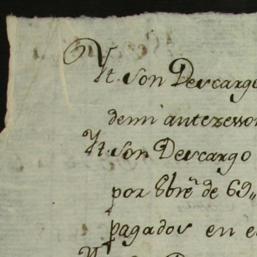 Yt. Son Descargo
demi antezessor
Yt. Son Descargo
por Ebrẽ de 69
pagados en e